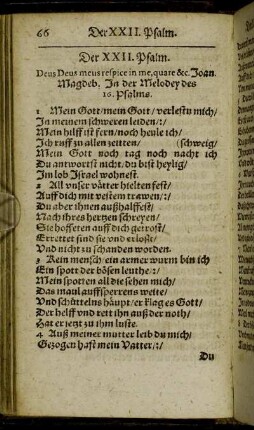 66 Der XXII. Psalm.
Der XXII. Psalm.
Deus Deus meus respice in me, quare &c. Joan.
Magdeb. In der Melodey des
16. Psalms.
1 Mein Gott/mein Gott/ verlestu mich/
In meinem schweren leiden:/:
Mein hilff ist fern/noch heule ich/
Ich ruff zu allen zeitten/ (schweig/
Mein Gott noch tag noch nacht ich
Du antwortst nicht/du bist heylig/
Im lob Israel wohnest.
2 All unser vätter hielten fest/
Auff dich mit vestem trawen/:/
Du aber ihnen außhalffest/
Nach ihres hertzen schreyen/
Sie hoffeten auff dich getrost/
Errettet sind sie und erlöst/
Und nicht zu schanden worden.
3 Kein mensch ein armer wurm bin ich
Ein spott der bösen leuthe:/:
Mein spotten all die sehen mich/
Das maul auffsperrens weite/
Und schüttelns häupt/er klag es Gott/
Der helff und rett ihn auß der noth/
Hat er jetzt zu ihm luste.
4 Auß meiner mutter leib du mich/
Gezogen hast mein Vatter/:/
Du